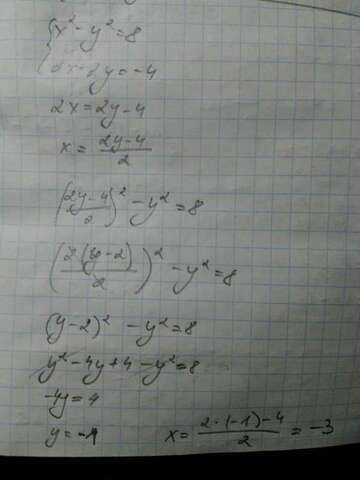 {x² - y² = 8
2x - 2y = -4
2x = 2y - 4
x = (2y-4)/2
((2y-4)/2)² - y² = 8
(2(y-2)/2)² - y² = 8
(y-2)² - y² = 8
y² - 4y + 4 - y² = 8
-4y = 4
y = -1 x = (2·(-1)-4)/2 = -3